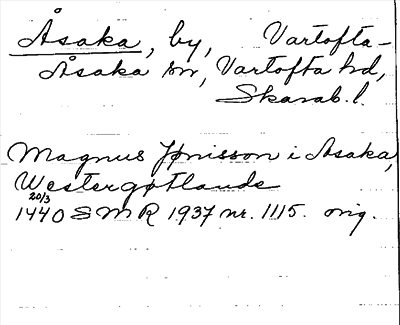 Åsaka, by, Vartofta-
Åsaka sn, Vartofta hd,
Skarab. l.
Magnus Jønisson i Asaka,
Westergøtlande
20/3
1440 SMR 1937 nr. 1115. orig.